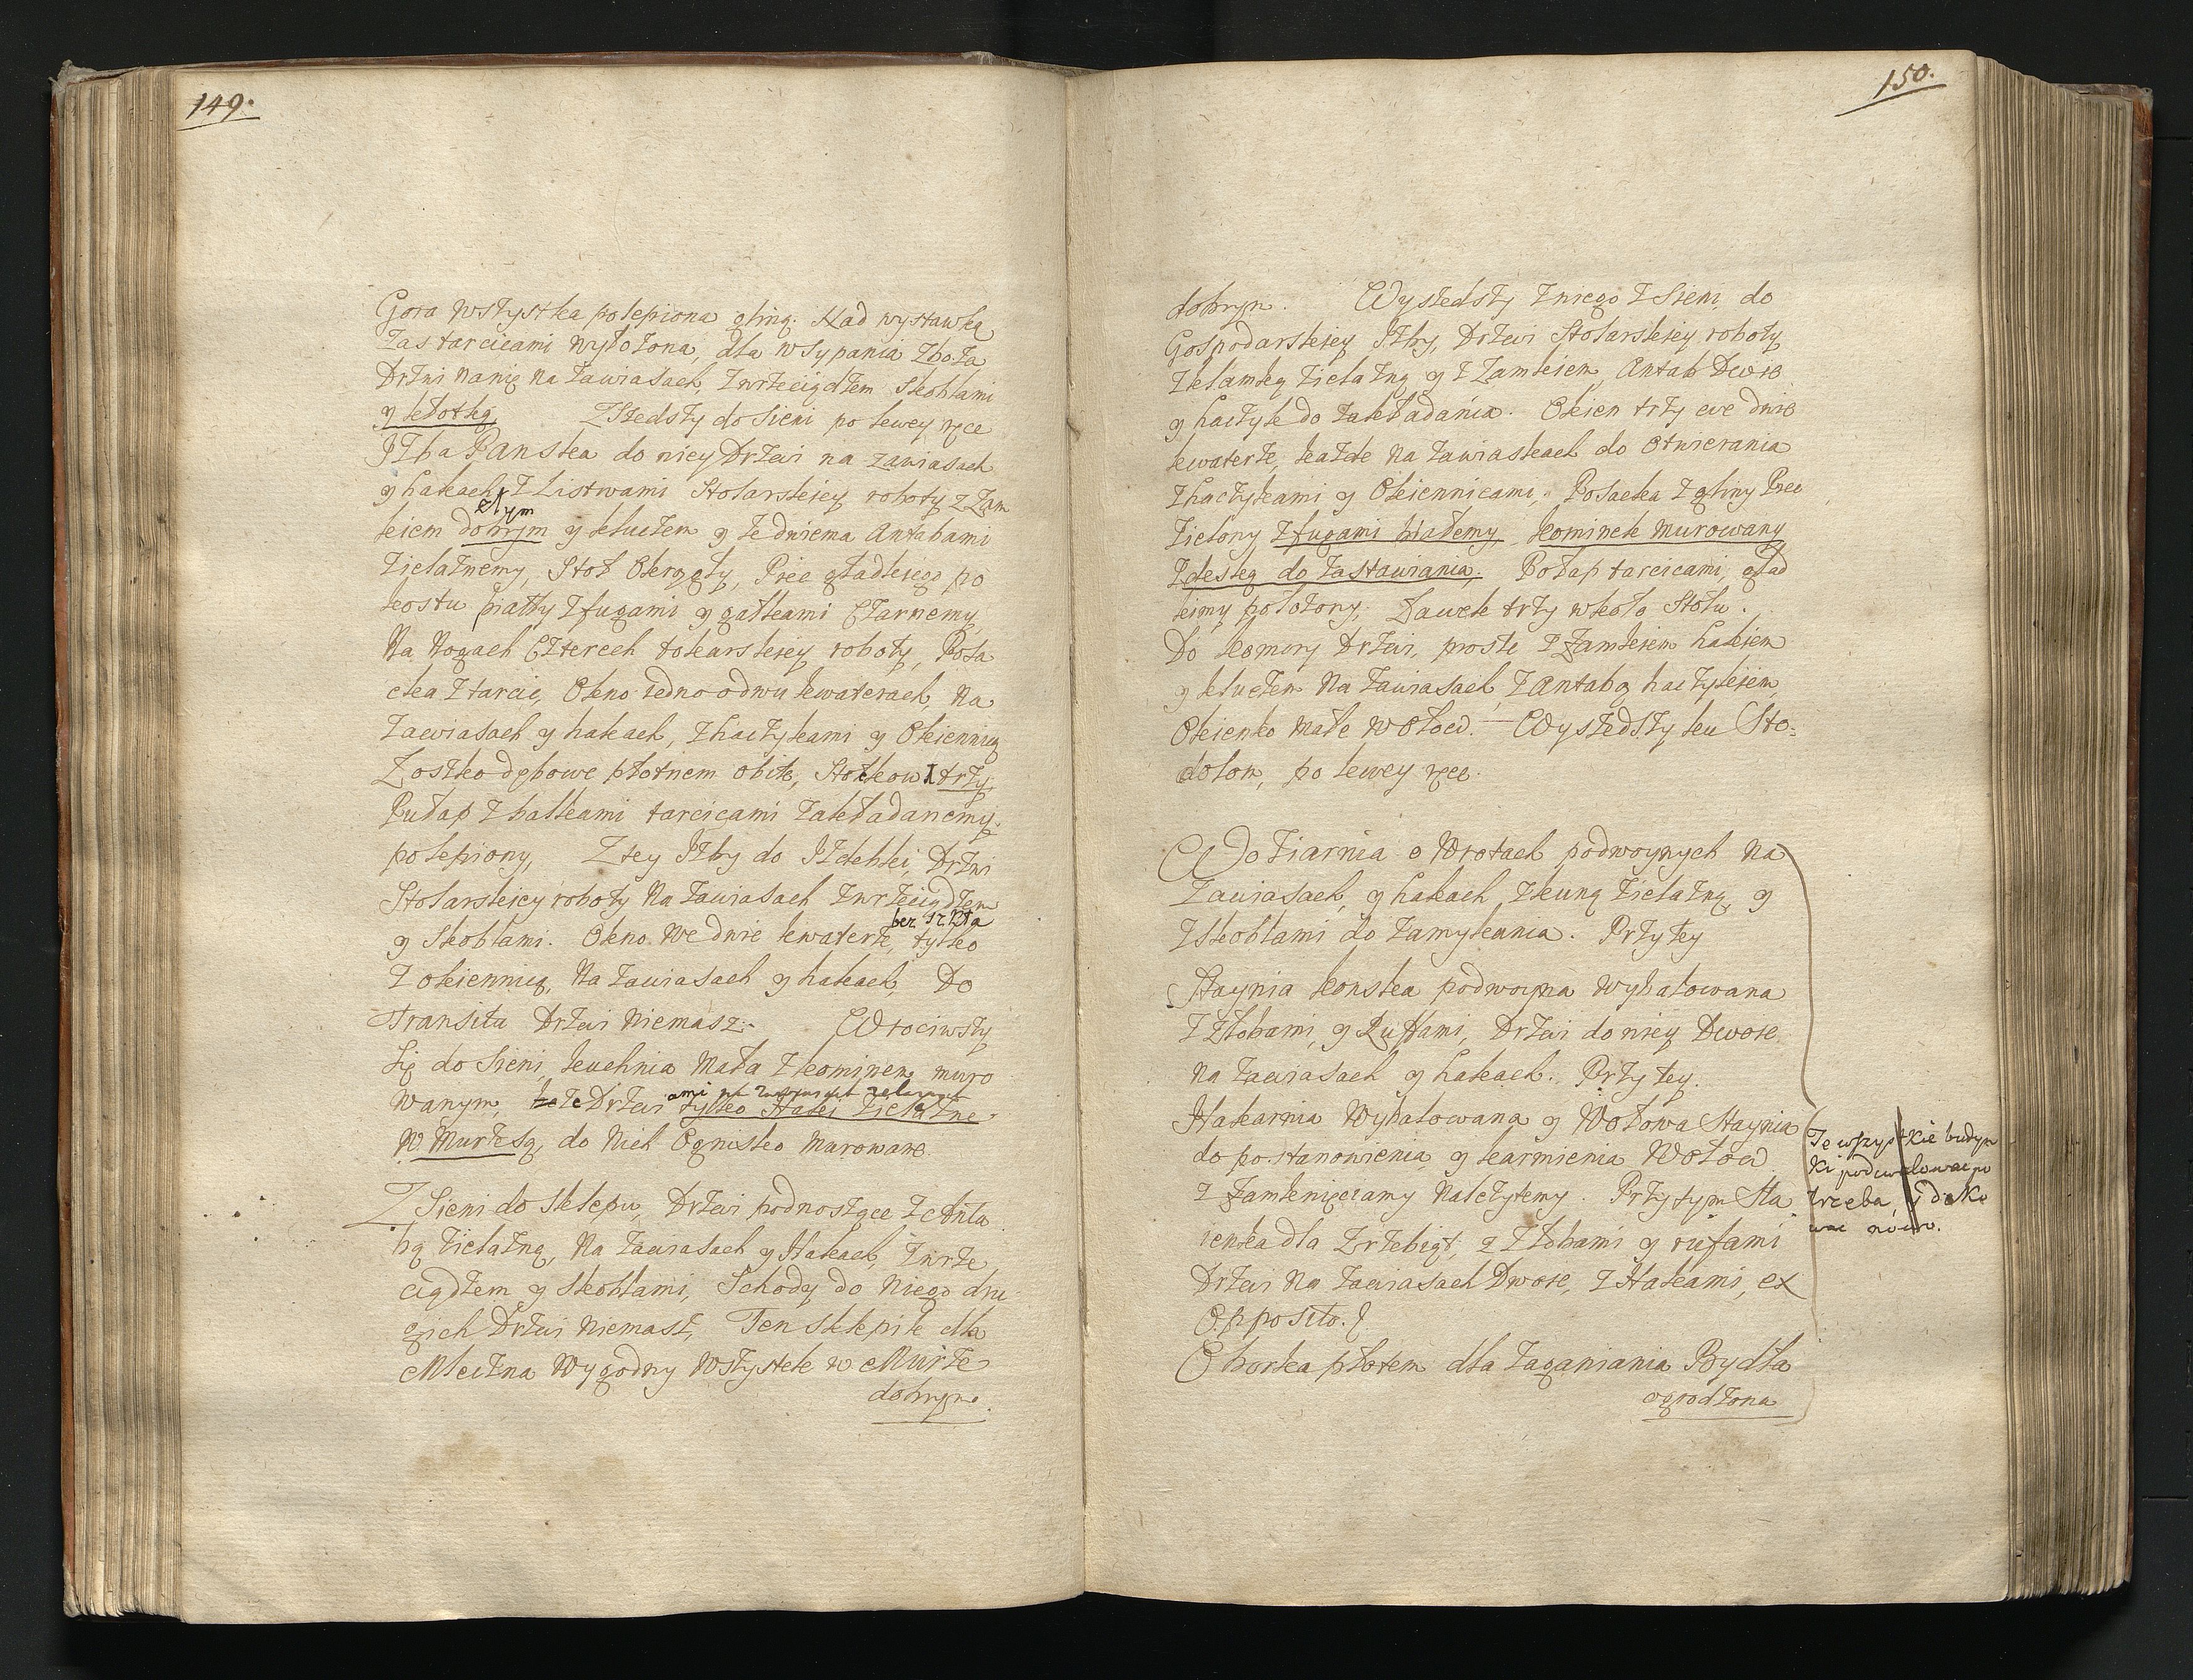 149.
Gora wszystka polepiona gliną. Nad wystawką
Zastarcicami wyłożona, dla wsypania zboża
Drzwi nanię na zawiasach, zwrzeciądzem Skoblami
y kłotką Zszedszy do Sieni po lewey ręce
Izba Panska do niey Drzwi na zawiasach
y hakach, z Listwami Stolarskiey roboty z Zam
złym
kiem dobrym y kluczem y ze dwiema Antabami
żielaznemy, Stoł Okrągły, Piec gładkiego po
kostu biały z fugami y gałkami Czarnemy,
Na Nogach Czterech tokarskiey roboty, Posa
cka z tarcic, Okno iedno odwu kwaterach, na
zawiasach y hakach, z haczykami y Okiennicą
Łoszko dębowe płotnem obite, Stołkow I trzy
Pułap z balkami tarcicami zakładanemy
polepiony, Ztey Izby do Izdebki, Drzwi
Stolarskiey roboty Na zawiasach zwrzeciądzem
bez
y Skoblami. Okno we dwie kwaterze, tylko
z okiennicą, Na zawiasach y hakach, Do
Transitu Drzwi niemasz. Wrociwszy
Się do Sieni, kuchnia mała z kominem muro
ami na zawiasach zelaznych
wanym, Drzwi tylko Haki żielazne
w Murze są, do Nich Ognisko murowane.
Z Sieni do sklepu, Drzwi podnoszące z Anta
bą żielazną, Na zawiasach y Hakach, zwrze
ciądzem y skoblami, Schody do niego dru
gich Drzwi niemasz, Ten sklepik dla
Mleczna wygodny wszystek w Murze
dobrym.
150.
dobrym. Wyszedszy zniego z Sieni do
Gospodarskiey Izby, Drzwi Stolarskiey roboty
z klamką żielazną y z Zamkiem, Antab Dwie
y haczyk do zakładania. Okien trzy we dwie
kwaterze, każde na zawiaskach do otwierania
z haczykami y Okiennicami, Posacka z gliny Piec
Zielony z fugami białemy, kominek murowany
z deską do zastawiania. Połap tarcicami, gład
kimy położony, Ławek trzy wkoło Stołu.
Do komory Drzwi, proste z Zamkiem hakiem
y kluczem na zawiasach, z Antabą haczykiem,
Okienko małe w ołow. Wyszedszy ku Sto=
dołom, po lewey ręce.
Woziarnia o Wrotach podwoynych na
zawiasach, y hakach z kuną żielazną, y
z Skoblami do zamykania. Przytey
Staynia konska podwoyna wybalowana
z Złobami, y Ruffami, Drzwi do niey Dwoie
na zawiasach y hakach. Przytey.
Hakarnia Wybalowana y Wołowa Staynia
do postanowienia y karmienia Wołow
z Zamknięciamy należytemy. Przytym Sta
ienka dla Zrzebiąt, z Złobami y rufami
Drzwi na zawiasach Dwoie, z Hakami, ex
Opposito.
Oborka płotem dla zaganiania Bydła
ogrodzona
Te wszystkie budyn
ki podwalowac po
trzeba, y